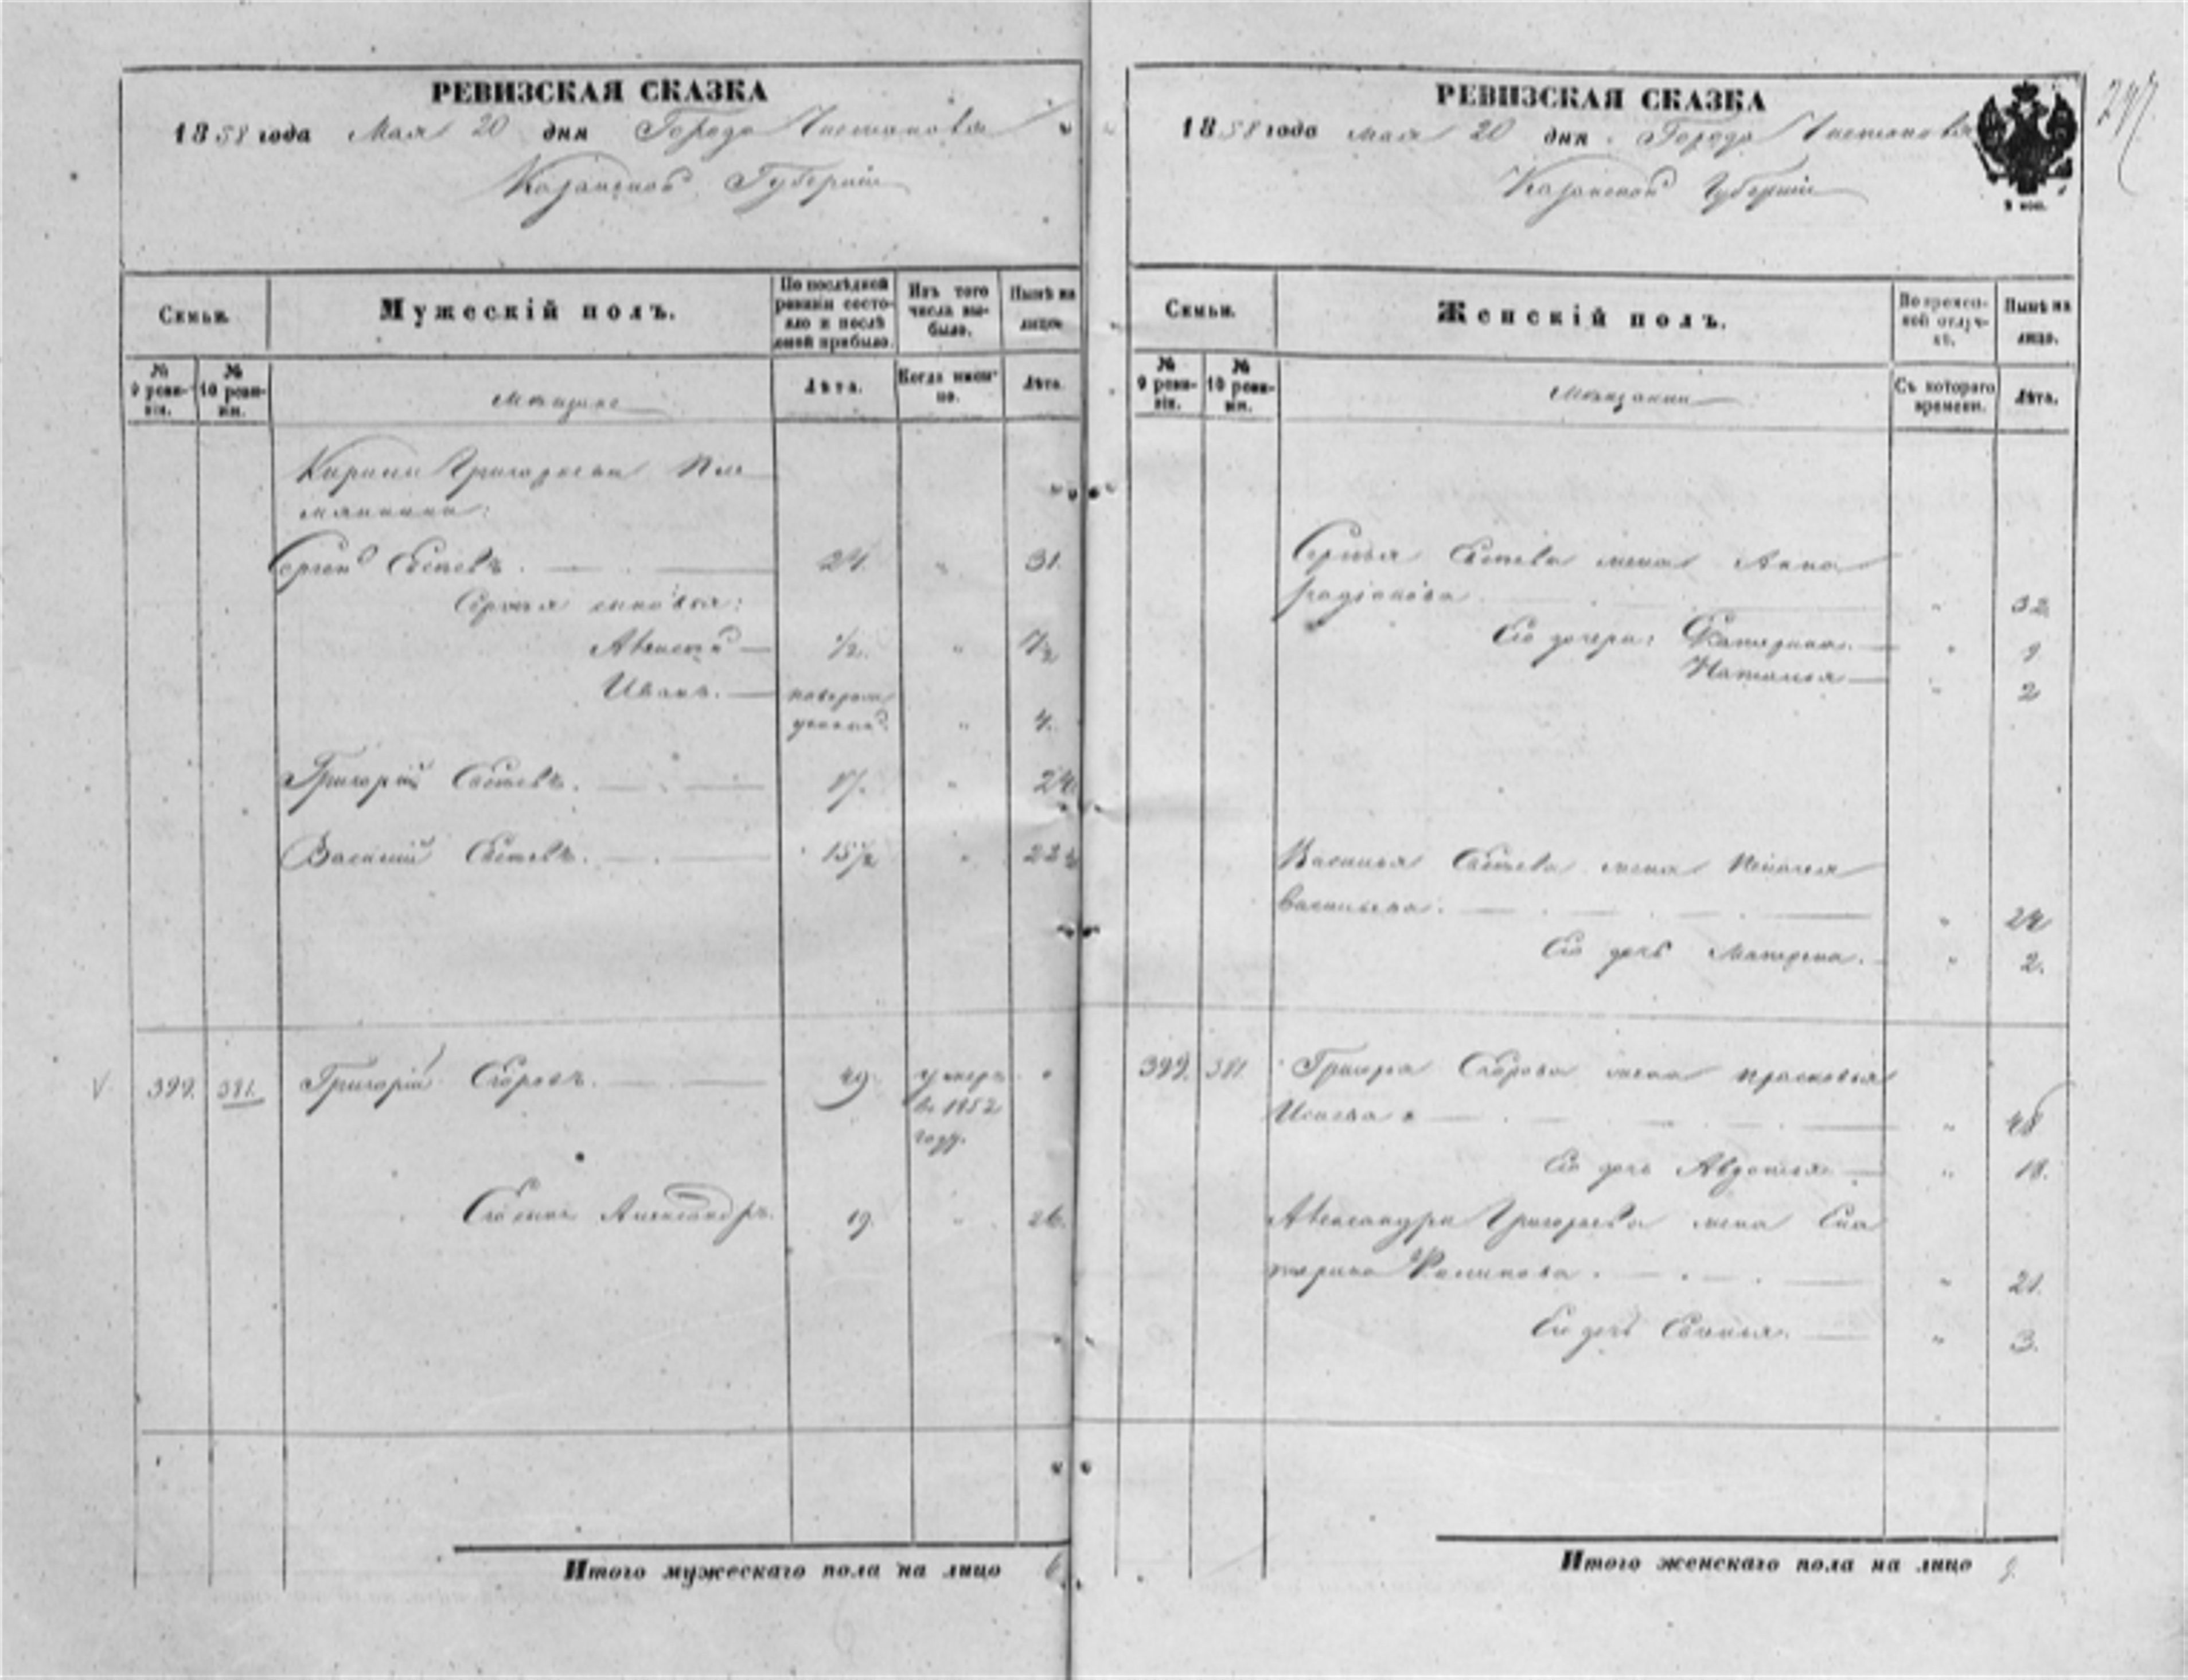 РЕВИЗСКАЯ СКАЗКА
1858 года Мая 20 дня Города Чистополя
Казанской Губернии
Семьи.
Мужескій полъ.
По послѣдней ревизіи состояло и послѣ оной прибыло.
Изъ того числа выбыло.
Нынѣ на лицо.
№ 9 ревизіи.
№ 10 ревизіи.
Мещане
Лѣта.
Когда именно.
Лѣта.
Кирила Григорьева пле
мянники:
Сергей 24. " 31.
Сергея сыновья:
Алексей — 1/2. " 7 1/2
Иванъ. — новорож
денный. " 4.
Григорій 17. " 24.
Василій 15 1/2 " 22 1/2
399. 381. Григорій Егоровъ. 49. умеръ
въ 1852
году.
Его сынъ Александръ. 19. " 26.
Итого мужескаго пола на лицо 6.
РЕВИЗСКАЯ СКАЗКА
1858 года мая 20 дня Города Чистополя
Казанской Губерніи
247
Семьи.
Женскій полъ.
Во временной отлучкѣ.
Нынѣ на лицо.
№ 9 ревизіи.
№ 10 ревизіи.
Мещанки
Съ котораго времени.
Лѣта.
Сергея жена Анна
Родіонова " 32.
Его дочери: Катерина. — " 9
Наталья — " 2
Василья жена
Васильева. " 24
Его дочь Матрена. " 2.
399. 381. Григорья Егорова жена Прасковья
Исаева " 48
Его дочь Авдотья — " 18.
Александра Григорьева жена Ека
терина " 21.
Его дочь " 3.
Итого женскаго пола на лицо 9.